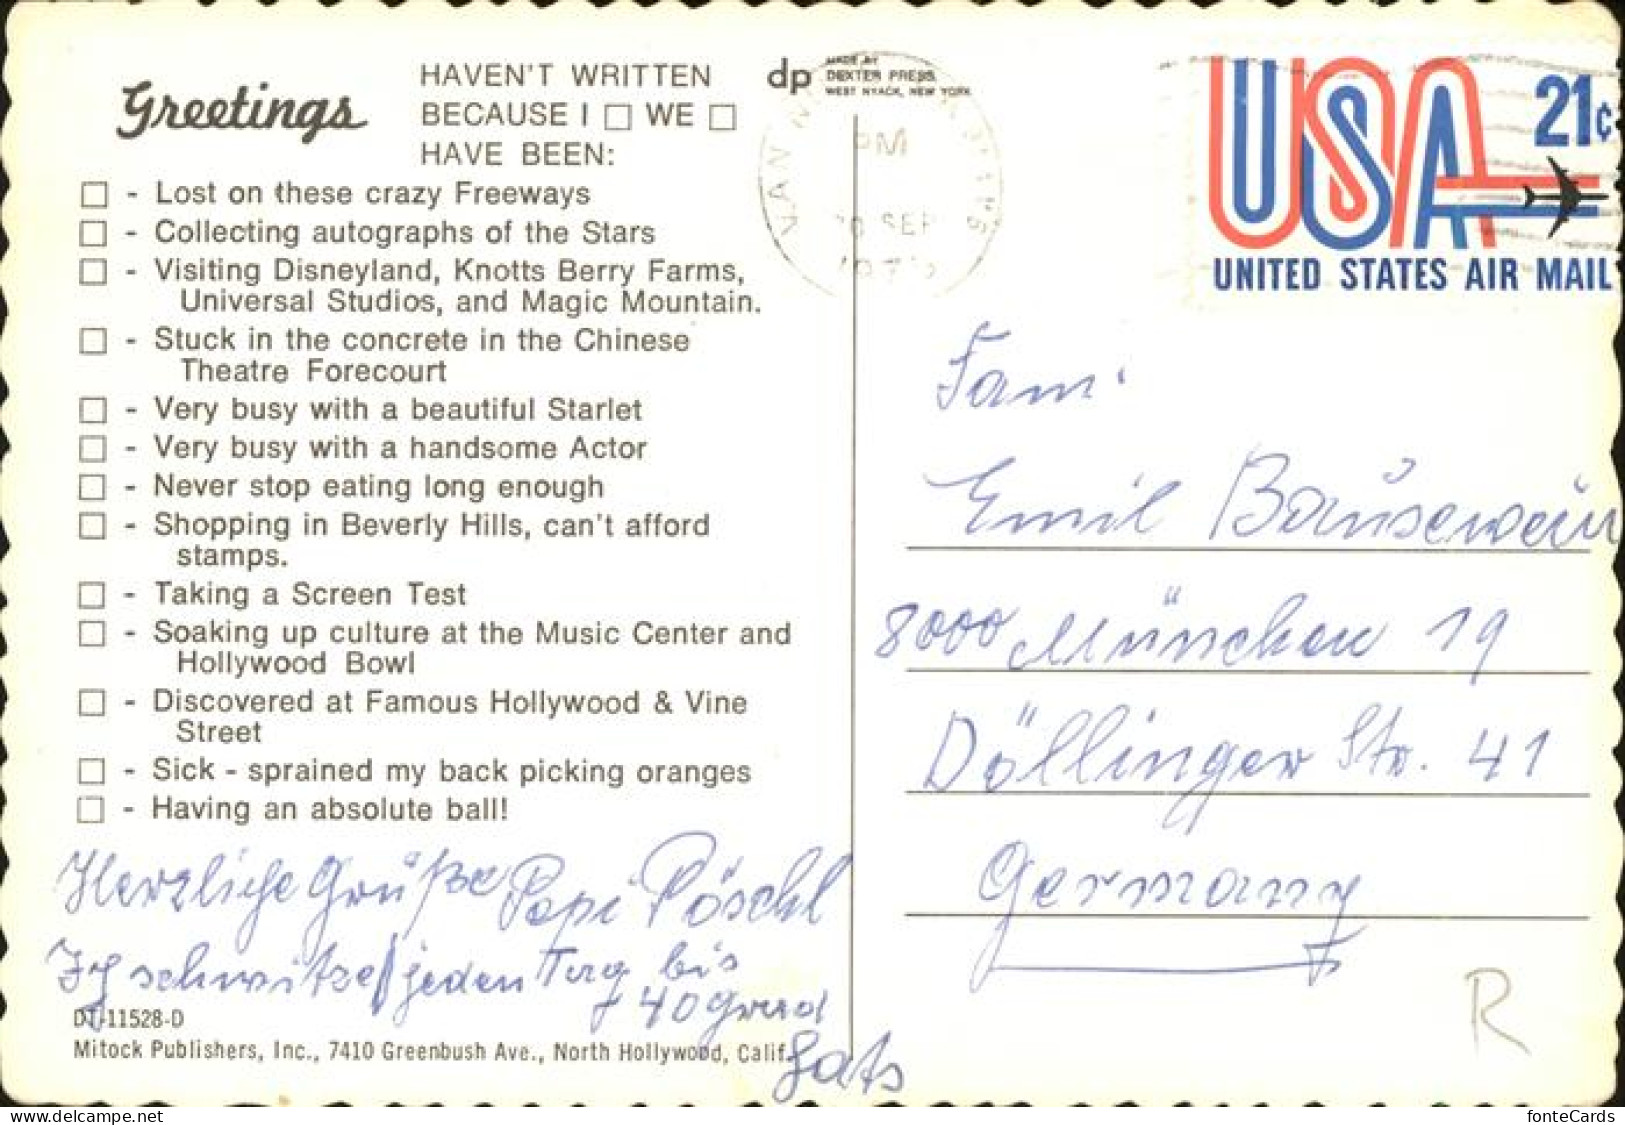 Greetings
HAVEN'T WRITTEN
BECAUSE I □ WE □
HAVE BEEN:
□ - Lost on these crazy Freeways
□ - Collecting autographs of the Stars
□ - Visiting Disneyland, Knotts Berry Farms,
Universal Studios, and Magic Mountain.
□ - Stuck in the concrete in the Chinese
Theatre Forecourt
□ - Very busy with a beautiful Starlet
□ - Very busy with a handsome Actor
□ - Never stop eating long enough
□ - Shopping in Beverly Hills, can't afford
stamps.
□ - Taking a Screen Test
□ - Soaking up culture at the Music Center and
Hollywood Bowl
□ - Discovered at Famous Hollywood & Vine
Street
□ - Sick - sprained my back picking oranges
□ - Having an absolute ball!
Herzliche Grüße Papi Pöschl
Ich schwitze jeden Tag bis
+ 40 Grad
DT-11528-D
Mitock Publishers, Inc., 7410 Greenbush Ave., North Hollywood, Calif.
dp
MADE BY
DEXTER PRESS
WEST NYACK, NEW YORK
VAN N
PM
SEP
USA
21c
UNITED STATES AIR MAIL
Fam.
Emil Bausewein
8000 München 19
Döllinger Str. 41
Germany
R
fonteCards
www.delcampe.net